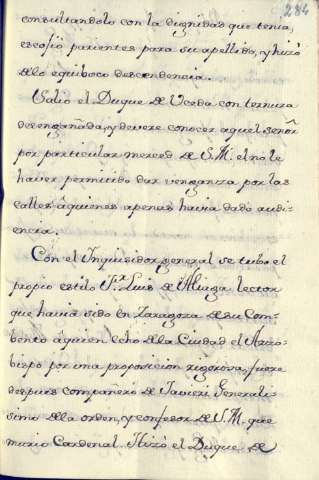 284
consultandolo con la dignidad que tenia,
escojió parientes para su apellido, y hizo
dlo equiboco descendencia.
Salio el Duque de Uceda con ternura
desengañada, y devere conocer aquel señor
por particular merced de S.M. el no le
haver permitido dar venganza por las
calles âquienes apenas havia dado audi-
encia.
Con el Inquisidor general se tubo el
propio estilo F.r Luis de Aliaga lector
que havia sido en Zaragoza de su Com-
bento âquien echo dla Ciudad el Arzo-
bispo por una proposicion rigorosa, fuere
despues compañero de Javieri Generali-
simo dla orden, y confesor de S.M. que
murio Cardenal. Hizó el Duque de